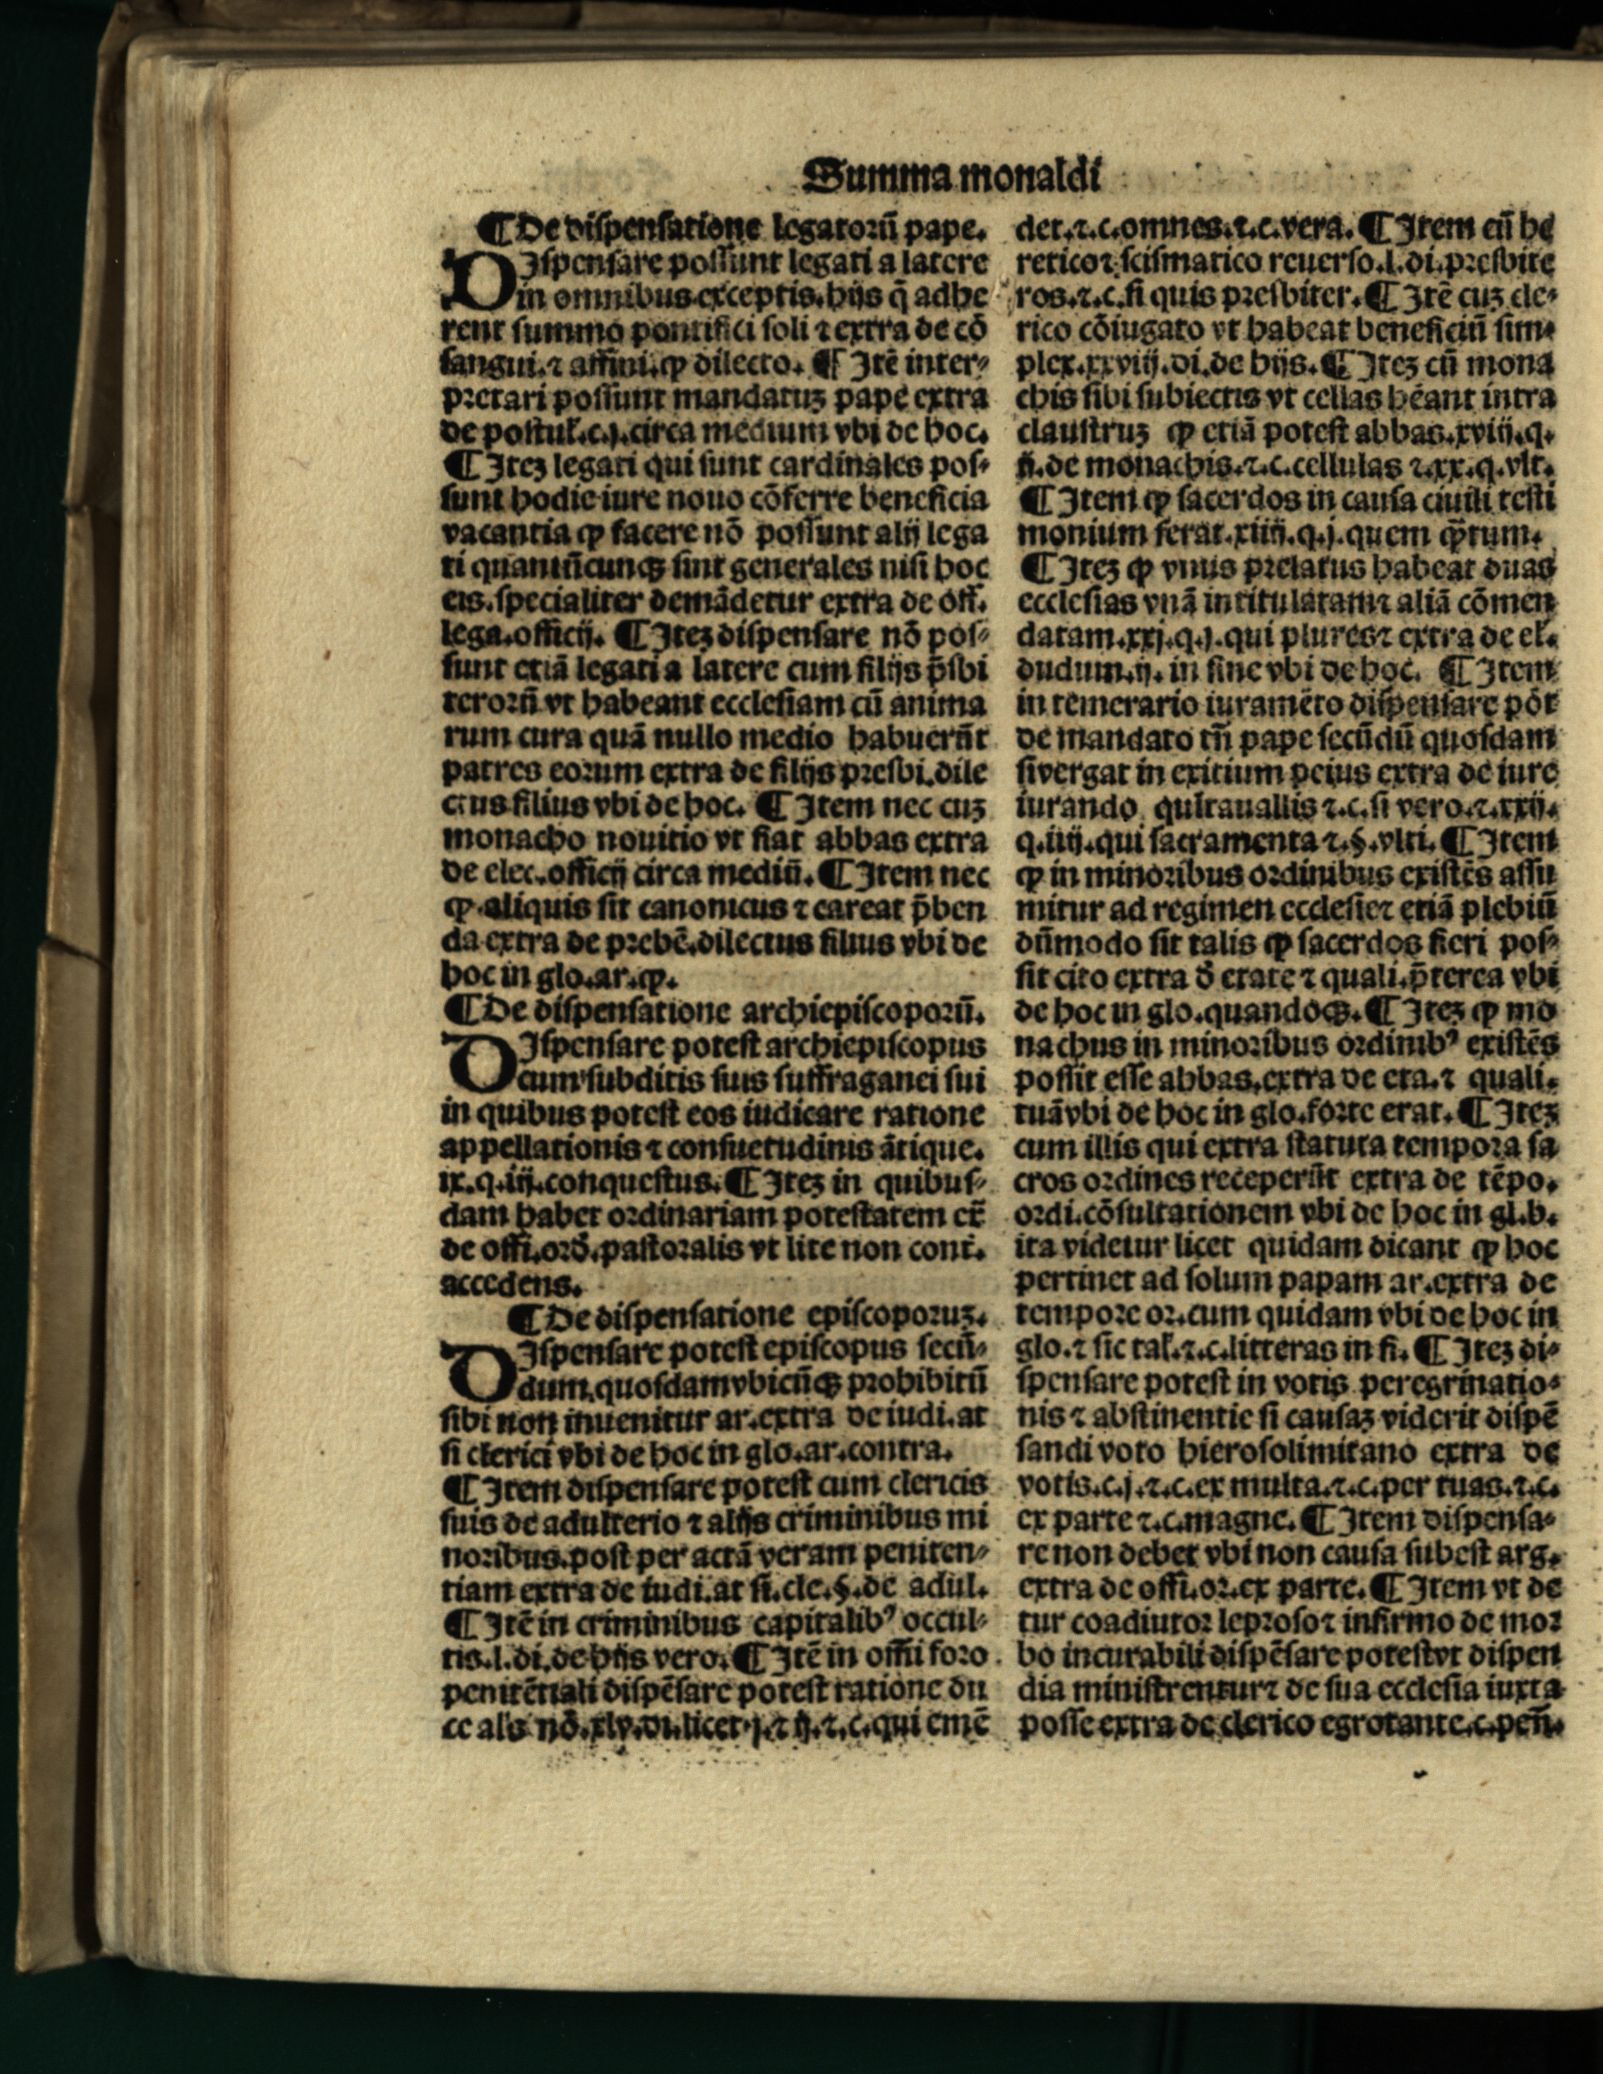 Summa monaldi
¶ De dispensatione legatorū pape.
DIspensare possunt legati a latere
in omnibus exceptis. hijs q̄ adhe
rent summo pontifici soli ⁊ extra de cō
sangui. ⁊ affini. ꝙ dilecto. ¶ Itē inter⸗
pretari possunt mandatuꝫ pape extra
de postul̕. c. j. circa medium vbi de hoc.
¶ Iteꝫ legati qui sunt cardinales pos⸗
sunt hodie iure nouo cōferre beneficia
vacantia ꝙ facere nō possunt alij lega
ti quantūcunqꝫ sint generales nisi hoc
eis. specialiter demādetur extra de off.
lega. officij. ¶ Iteꝫ dispensare nō pos⸗
sunt etiā legati a latere cum filijs p̄sbi
terorū vt habeant ecclesiam cū anima
rum cura quā nullo medio habuerūt
patres eorum extra de filijs presbi. dile
ctus filius vbi de hoc. ¶ Item nec cuꝫ
monacho nouitio vt fiat abbas extra
de elec. officij circa mediū. ¶ Item nec
ꝙ aliquis sit canonicus ⁊ careat p̄ben
da extra de prebē. dilectus filius vbi de
hoc in glo. ar. ꝙ.
¶ De dispensatione archiepiscoporū.
DIspensare potest archiepiscopus
cum subditis suis suffraganei sui
in quibus potest eos iudicare ratione
appellationis ⁊ consuetudinis ātique.
ix. q. iij. conquestus. ¶ Iteꝫ in quibus⸗
dam habet ordinariam potestatem ex̄
de offi. ord̄. pastoralis vt lite non cont.
accedens.
¶ De dispensatione episcoporuꝫ.
DIspensare potest episcopus secū⸗
dum. quosdam vbicūqꝫ prohibitū
sibi non inuenitur ar. extra de iudi. at
si clerici vbi de hoc in glo. ar. contra.
¶ Item dispensare potest cum clericis
suis de adulterio ⁊ alijs criminibus mi
noribus. post per actā veram peniten⸗
tiam extra de iudi. at si. cle. §. de adul.
¶ Itē in criminibus capitalibꝰ occul⸗
tis. l. di. de hijs vero. ¶ Itē in offi foro
penitētiali dispēsare potest ratione du
ce als nō. xlv. di. licet. j. ⁊ ij. ⁊. c. qui emē
det. ⁊. c. omnes. ⁊. c. vera. ¶ Item cū he
retico ⁊ scismatico reuerso. l. di. presbite
ros. ⁊. c. si quis presbiter. ¶ Itē cuꝫ cle⸗
rico cōiugato vt habeat beneficiū sim⸗
plex. xxviij. di. de hijs. ¶ Iteꝫ cū mona
chis sibi subiectis vt cellas hēant intra
claustruꝫ ꝙ etiā potest abbas. xviij. q.
ij. de monachis. ⁊. c. cellulas ⁊. xx. q. vlt.
¶ Item ꝙ sacerdos in causa ciuili testi
monium ferat. xiiij. q. j. quem q̄rtum.
¶ Iteꝫ ꝙ vnus prelatus habeat duas
ecclesias vnā intitulatam ⁊ aliā cōmen
datam. xxj. q. j. qui plures ⁊ extra de el̕.
dudum. ij. in fine vbi de hoc. ¶ Item
in temerario iuramēto dispensare pōt
de mandato tn̄ pape secūdū quosdam
si vergat in exitium peius extra de iure
iurando quītauallis ⁊. c. si vero. ⁊. xxij.
q. iiij. qui sacramenta ⁊. §. vlti. ¶ Item
ꝙ in minoribus ordinibus existēs assu
mitur ad regimen ecclesie ⁊ etiā plebiū
dūmodo sit talis ꝙ sacerdos fieri pos⸗
sit cito extra d̄ etate ⁊ quali. p̄terea vbi
de hoc in glo. quandoqꝫ. ¶ Iteꝫ ꝙ mo
nachus in minoribus ordinibꝰ existēs
possit esse abbas. extra de eta. ⁊ quali.
tuā vbi de hoc in glo. forte erat. ¶ Iteꝫ
cum illis qui extra statuta tempora sa
cros ordines receperūt extra de tēpo.
ordi. cōsultationem vbi de hoc in gl. b.
ita videtur licet quidam dicant ꝙ hoc
pertinet ad solum papam ar. extra de
tempore or. cum quidam vbi de hoc in
glo. ⁊ sic tal̕. ⁊. c. litteras in fi. ¶ Iteꝫ di⸗
spensare potest in votis peregrinatio⸗
nis ⁊ abstinentie si causaꝫ viderit dispē
sandi voto hierosolimitano extra de
votis. c. j. ⁊. c. ex multa. ⁊. c. per tuas. ⁊. c.
ex parte ⁊. c. magne. ¶ Item dispensa⸗
re non debet vbi non causa subest arg.
extra de offi. or. ex parte. ¶ Item vt de
tur coadiutor leproso ⁊ infirmo de mor
bo incurabili dispēsare potest vt dispen
dia ministrentur ⁊ de sua ecclesia iuxta
posse extra de clerico egrotante. c. peñ.